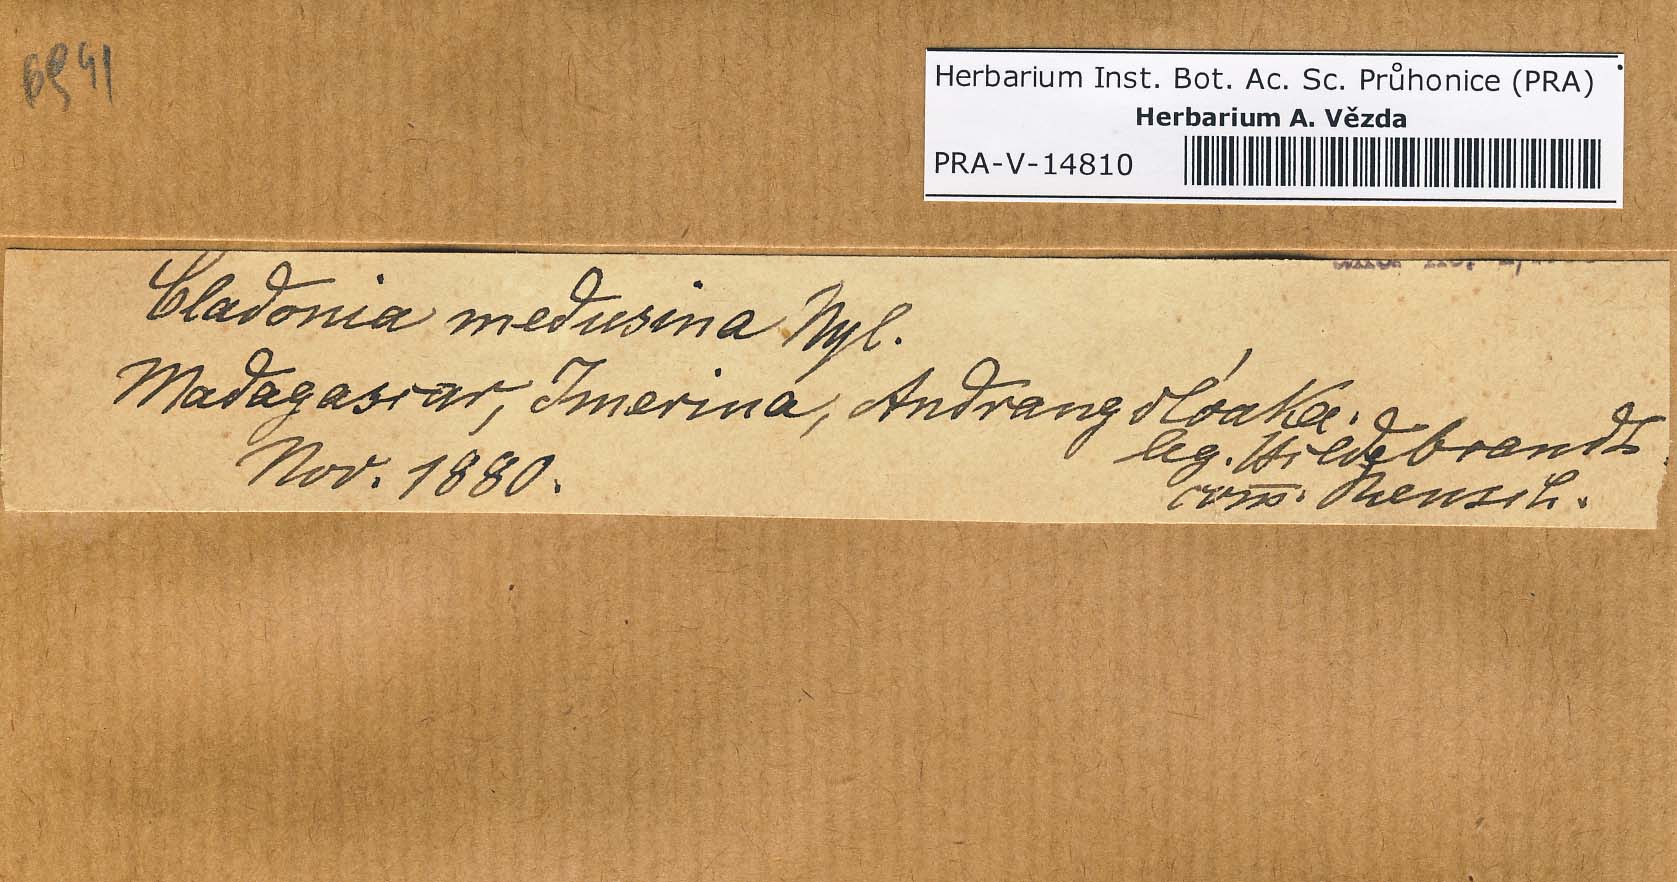 Herbarium Inst. Bot. Ac. Sc. Průhonice (PRA)
Herbarium A. Vězda
PRA-V-14810
Cladonia medusina Nyl.
Madagascar, Imerina, Andrangolóaka.
leg. Hildebrandt
Nov. 1880.
com. Rensch.